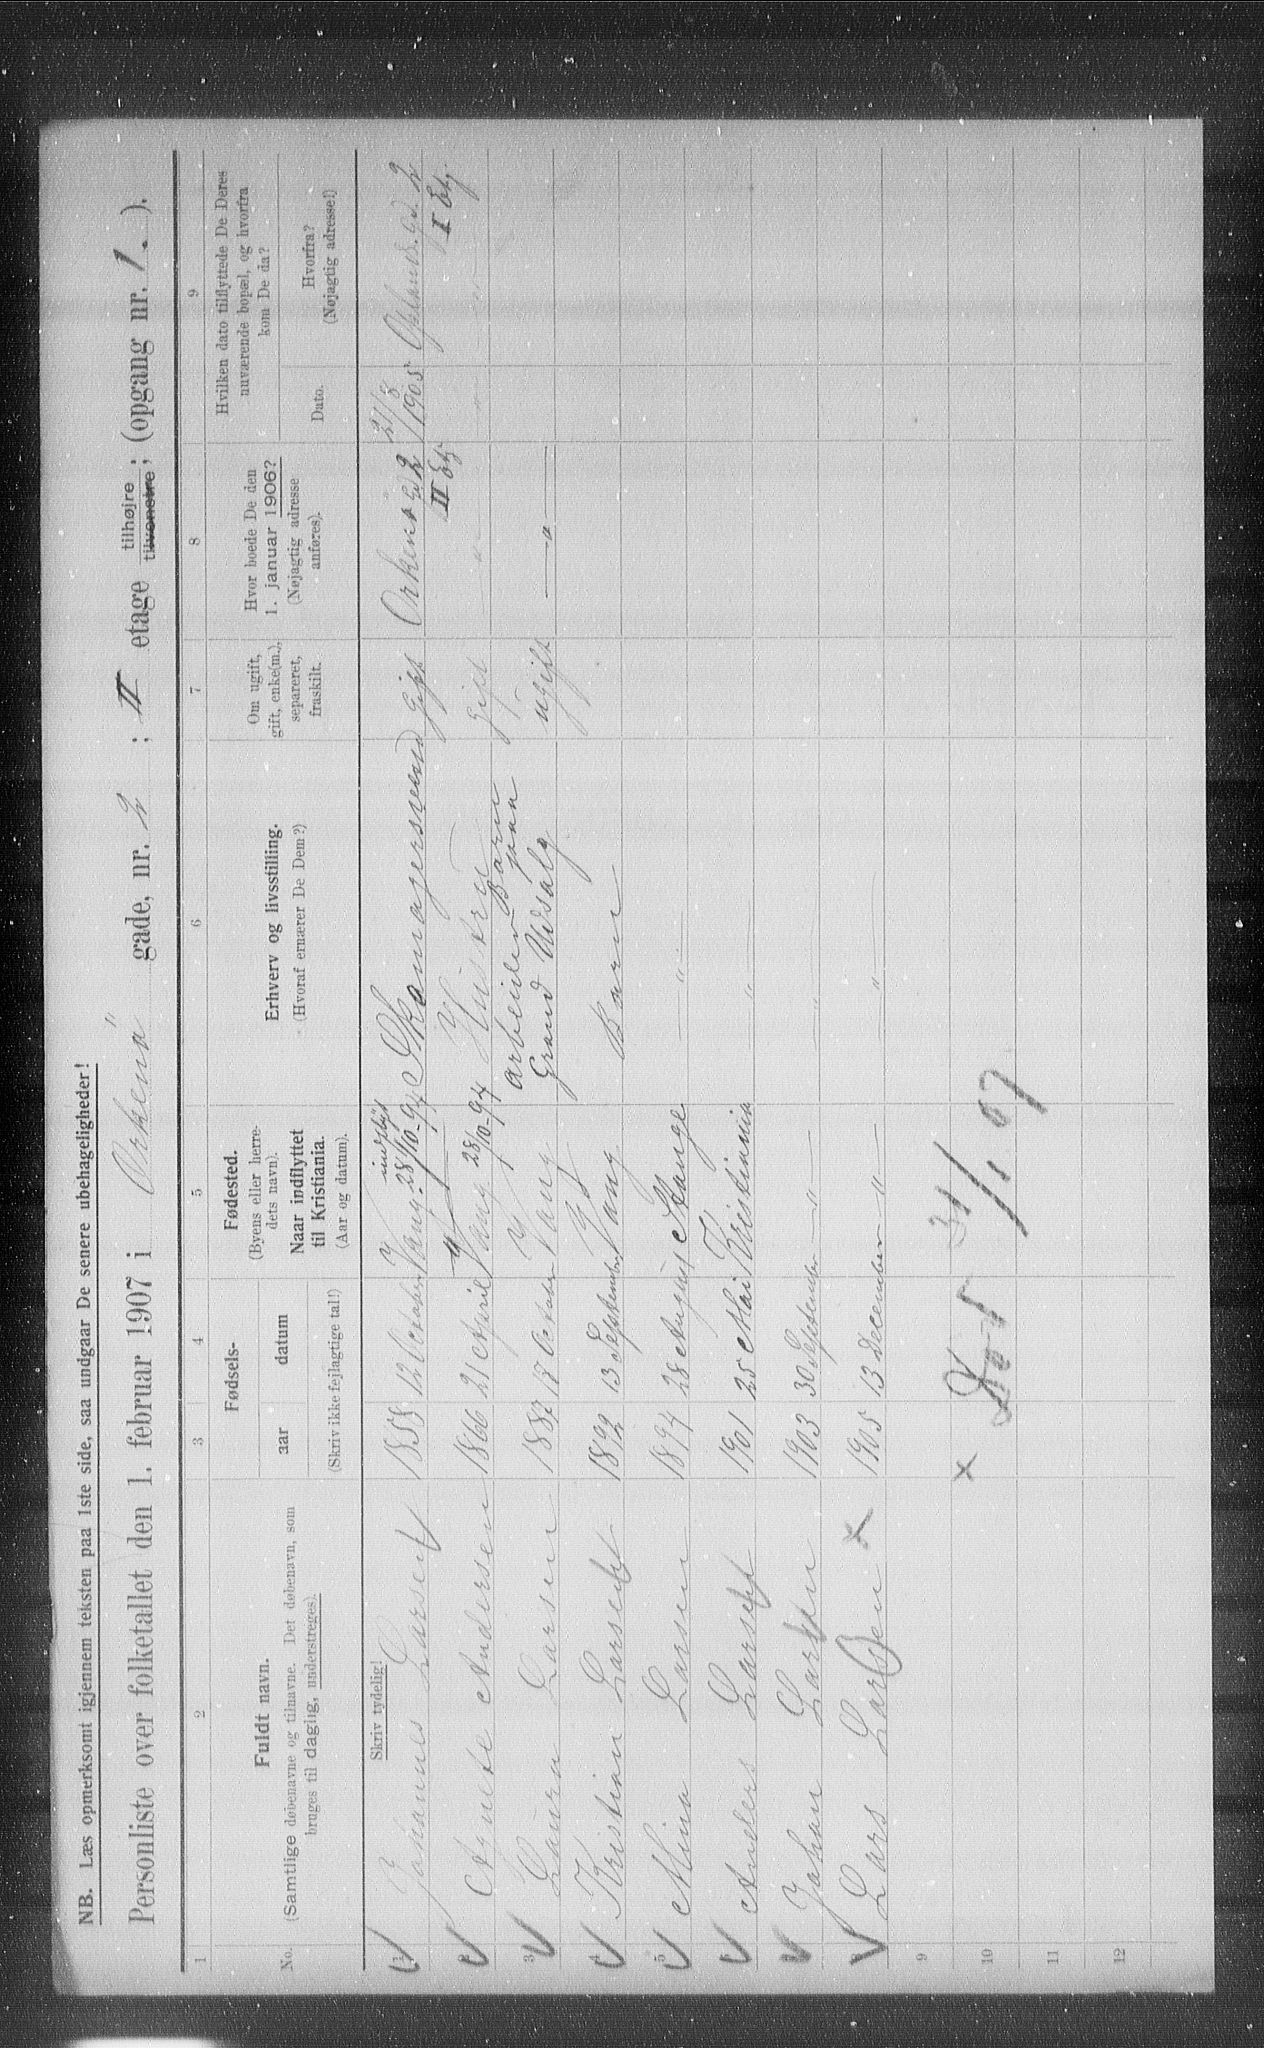 NB. Læs opmerksomt igjennem teksten paa 1ste side, saa undgaar De senere ubehageligheder!
Personliste over folketallet den 1. februar 1907 i Orkenö gade, nr. 2 ; II etage tilhøjre ; (opgang nr. 1. ).
tilvenstre
1 2 3 4 5 6 7 8 9
No.
Fuldt navn.
(Samtlige døbenavne og tilnavne. Det døbenavn, som
bruges til daglig, understreges).
Fødsels-
aar datum
(Skriv ikke fejlagtige tal!)
Fødested.
(Byens eller herre-
dets navn).
Naar indflyttet
til Kristiania.
(Aar og datum).
Erhverv og livsstilling.
(Hvoraf ernærer De Dem?)
Om ugift,
gift, enke(m.),
separeret,
fraskilt.
Hvor boede De den
1. januar 1906?
(Nøjagtig adresse
anføres).
Hvilken dato tilflyttede De Deres
nuværende bopæl, og hvorfra
kom De da?
Dato.
Hvorfra?
(Nøjagtig adresse!)
Skriv tydelig!
1 Johannes Larsen 1858 12 October Vang indflyt 28/10-94 Skomagersvend Gift Orkenö gd 2 II Etg 21/8 1905 Oplands.gd. 2 I Etg.
2 Agnete Andersen 1866 21 April Vang 28/10-94 Hustru Gift " " "
3 Laura Larsen 1887 17 October Vang arbeider Barn paa Grand Udsalg ugift — " —
4 Kristian Larsen 1892 13 September Vang Barn
5 Mina Larsen 1894 28 August Stange — " —
Anders Larsen 1901 25 Mai Kristiania — " —
Johan Larsen 1903 30 September — " — — " —
Lars Larsen x 1905 13 December — " — — " —
9
10 x Döt 31/1 07
11
12